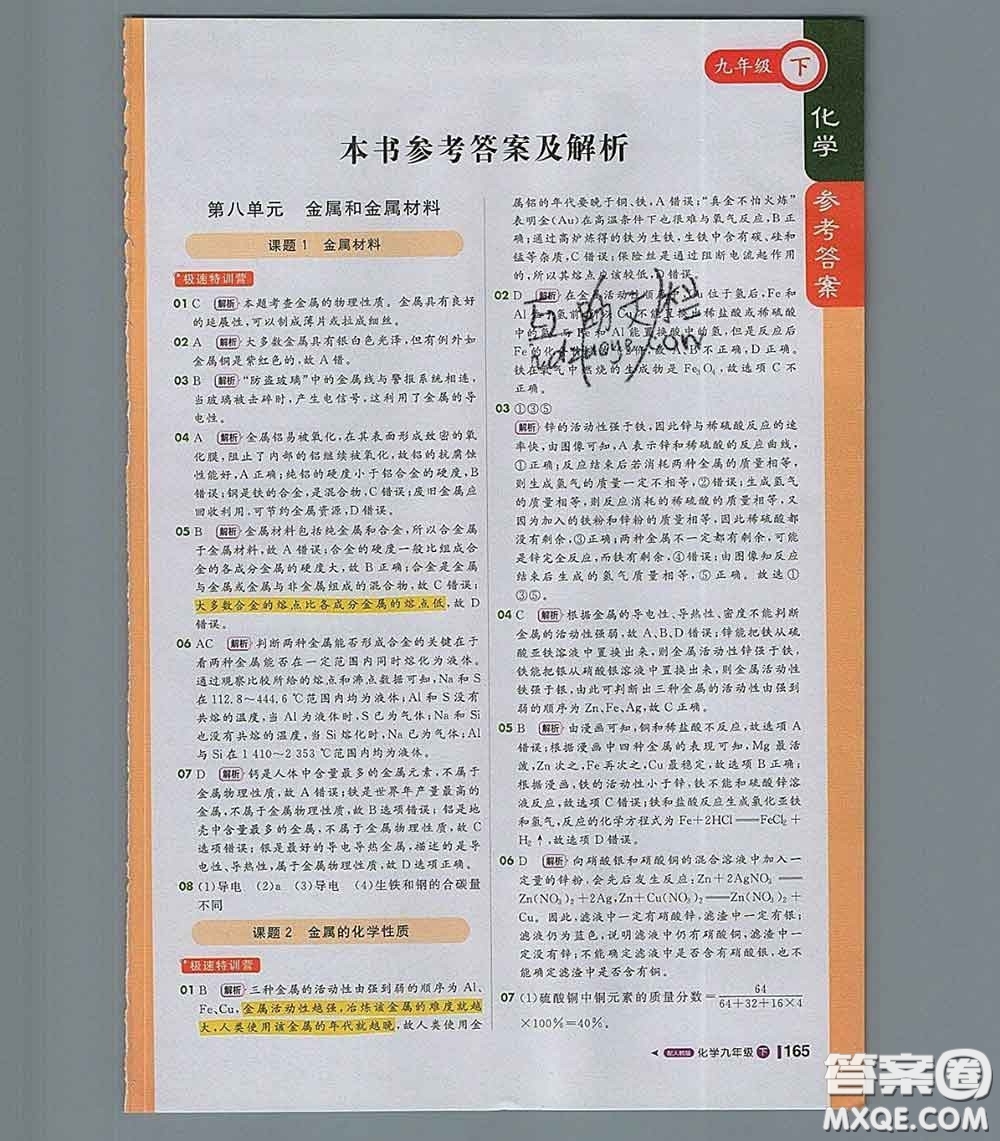 九年级 下
化学
参考答案
本书参考答案及解析
第八单元 金属和金属材料
课题1 金属材料
极速特训营
01 C 解析 本题考查金属的物理性质。金属具有良好
的延展性,可以制成薄片或拉成细丝。
02 A 解析 大多数金属具有银白色光泽,但有例外如
金属铜是紫红色的,故A错。
03 B 解析 “防盗玻璃”中的金属线与警报系统相连,
当玻璃被击碎时,产生电信号,这利用了金属的导
电性。
04 A 解析 金属铝易被氧化,在其表面形成致密的氧
化膜,阻止了内部的铝继续被氧化,故铝的抗腐蚀
性能好,A正确;纯铝的硬度小于铝合金的硬度,B
错误;钢是铁的合金,是混合物,C错误;废旧金属应
回收利用,可节约金属资源,D错误。
05 B 解析 金属材料包括纯金属和合金,所以合金属
于金属材料,故A错误;合金的硬度一般比组成合
金的各成分金属的硬度大,故B正确;合金是金属
与金属或金属与非金属组成的混合物,故C错误;
大多数合金的熔点比各成分金属的熔点低,故D
错误。
06 AC 解析 判断两种金属能否形成合金的关键在于
看两种金属能否在一定范围内同时熔化为液体。
通过观察比较所给的熔点和沸点数据可知,Na和S
在112.8～444.6℃范围内均为液体;Al和S没有
共熔的温度,当Al为液体时,S已为气体;Na和Si
也没有共熔的温度,当Si熔化时,Na已为气体;Al
与Si在1 410～2 353 ℃范围内均为液体。
07 D 解析 钙是人体中含量最多的金属元素,不属于
金属物理性质,故A错误;铁是世界年产量最高的
金属,不属于金属物理性质,故B选项错误;铝是地
壳中含量最多的金属,不属于金属物理性质,故C
选项错误;银是最好的导电导热金属,描述的是导
电性、导热性,属于金属物理性质,故D选项正确。
08 (1)导电 (2)a (3)导电 (4)生铁和钢的含碳量
不同
课题2 金属的化学性质
极速特训营
01 B 解析 三种金属的活动性由强到弱的顺序为Al、
Fe、Cu,金属活动性越强,冶炼该金属的难度就越
大,人类使用该金属的年代就越晚,故人类使用金
属铝的年代要晚于铜、铁,A错误;“真金不怕火炼”
表明金(Au)在高温条件下也很难与氧气反应,B正
确;通过高炉炼得的铁为生铁,生铁中含有碳、硅和
锰等杂质,C错误;保险丝是通过阻断电流起作用
的,所以其熔点应该较低,D错误。
02 D 解析 在金属活动性顺序
铁在氧气中燃烧的生成物是Fe₃O₄,故选项C不
正确。
03 ①③⑤
解析 锌的活动性强于铁,因此锌与稀硫酸反应的速
率快,由图像可知,A表示锌和硫酸的反应曲线,
①正确;反应结束后若消耗两种金属的质量相等,
则生成氢气的质量一定不相等,②错误;生成氢气
的质量相等,则反应消耗的稀硫酸的质量相等,又
因为加入的铁粉和锌粉的质量相等,因此稀硫酸都
没有剩余,③正确;两种金属不一定都有剩余,可能
是锌完全反应,而铁有剩余,④错误;由图像知反应
结束后生成的氢气质量相等,⑤正确。故选①
③⑤。
04 C 解析 根据金属的导电性、导热性、密度不能判断
金属的活动性强弱,故A、B、D错误;锌能把铁从硫
酸亚铁溶液中置换出来,则锌的活动性强于铁,
铁能把银从硝酸银溶液中置换出来,则金属活动性
铁强于银,由此可判断出三种金属的活动性由强到
弱的顺序为Zn、Fe、Ag,故C正确。
05 B 解析 由漫画可知,铜和稀盐酸不反应,故选项A
错误;根据漫画中四种金属的表现可知,Mg最活
泼,Zn次之,Fe再次之,Cu最稳定,故选项B正确;
根据漫画,铁的活动性小于锌,铁不能和硫酸锌溶
液反应,故选项C错误;铁和盐酸反应生成氯化亚铁
和氢气,反应的化学方程式为Fe+2HCl══FeCl₂+
H₂↑,故选项D错误。
06 D 解析 向硝酸银和硝酸铜的混合溶液中加入一
定量的锌粉,会先后发生反应:Zn+2AgNO₃══
Zn(NO₃)₂+2Ag,Zn+Cu(NO₃)₂══Zn(NO₃)₂+
Cu。因此,滤液中一定有硝酸锌,滤渣中一定有银;
滤液仍为蓝色,说明滤液中一定有硝酸铜,滤渣中一
定没有锌;不能确定滤液中是否含有硝酸银,也不能
确定滤渣中是否含有铜。
07 (1)硫酸铜中铜元素的质量分数=64/(64+32+16×4)
×100%=40%。
配人教版 化学九年级 下 165
答案圈
MXQE.COM